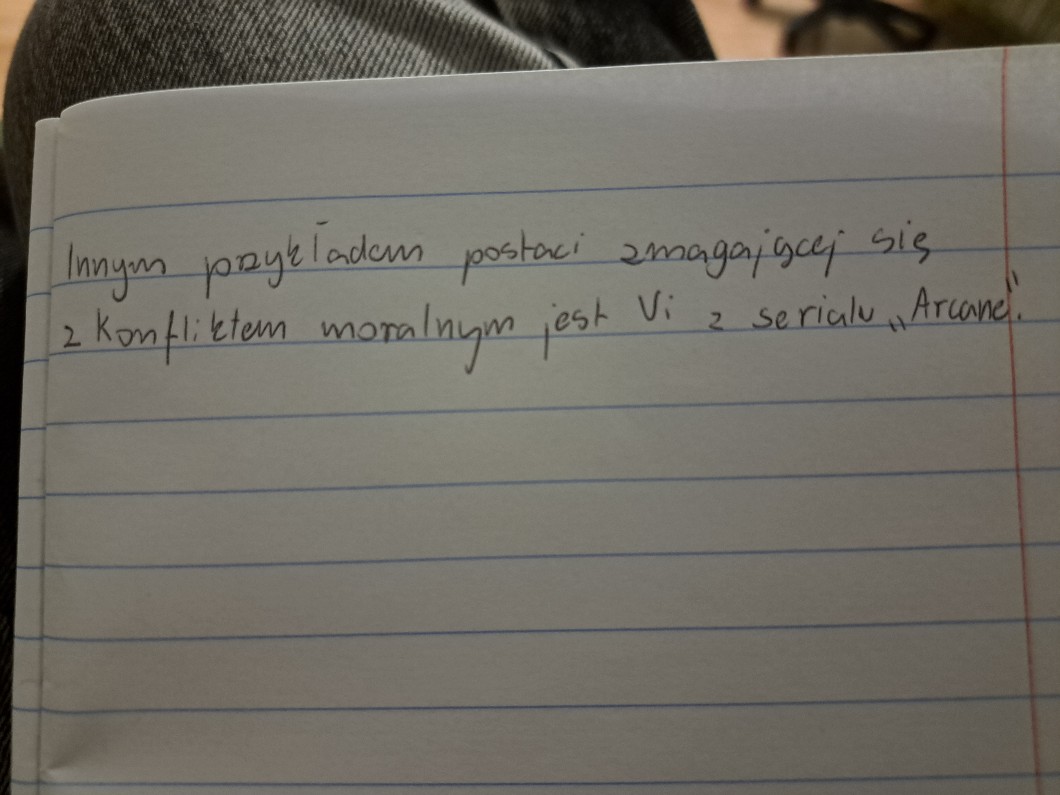 Innym przykładem postaci zmagającej się
z konfliktem moralnym jest Vi z serialu „Arcane".